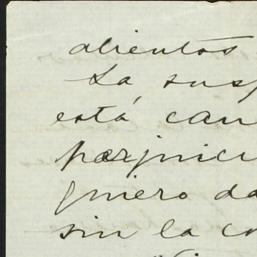 alientos
La sus
está cau
perjuici
quiero da
sin la co